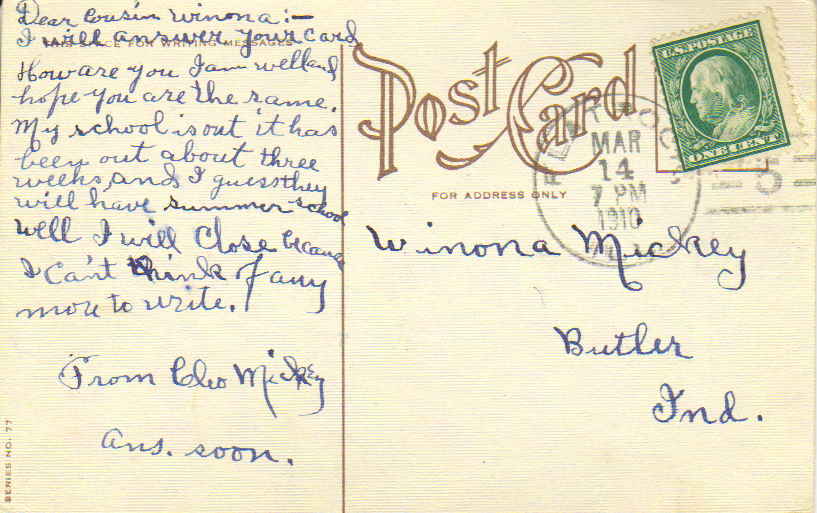 Dear Cousin Winona:—
THIS SPACE FOR WRITING MESSAGES
I will answer your card
How are you I am well and
hope you are the same.
My school is out it has
been out about three
weeks, and I guess they
will have summer school
Well I will Close because
I Can't think of any
more to write.
From Cleo Mickey
Ans. soon.
SERIES NO. 77
Post Card
FOR ADDRESS ONLY
U.S. POSTAGE
ONE CENT
MAR
14
7 PM
1910
5
Winona Mickey
Butler
Ind.